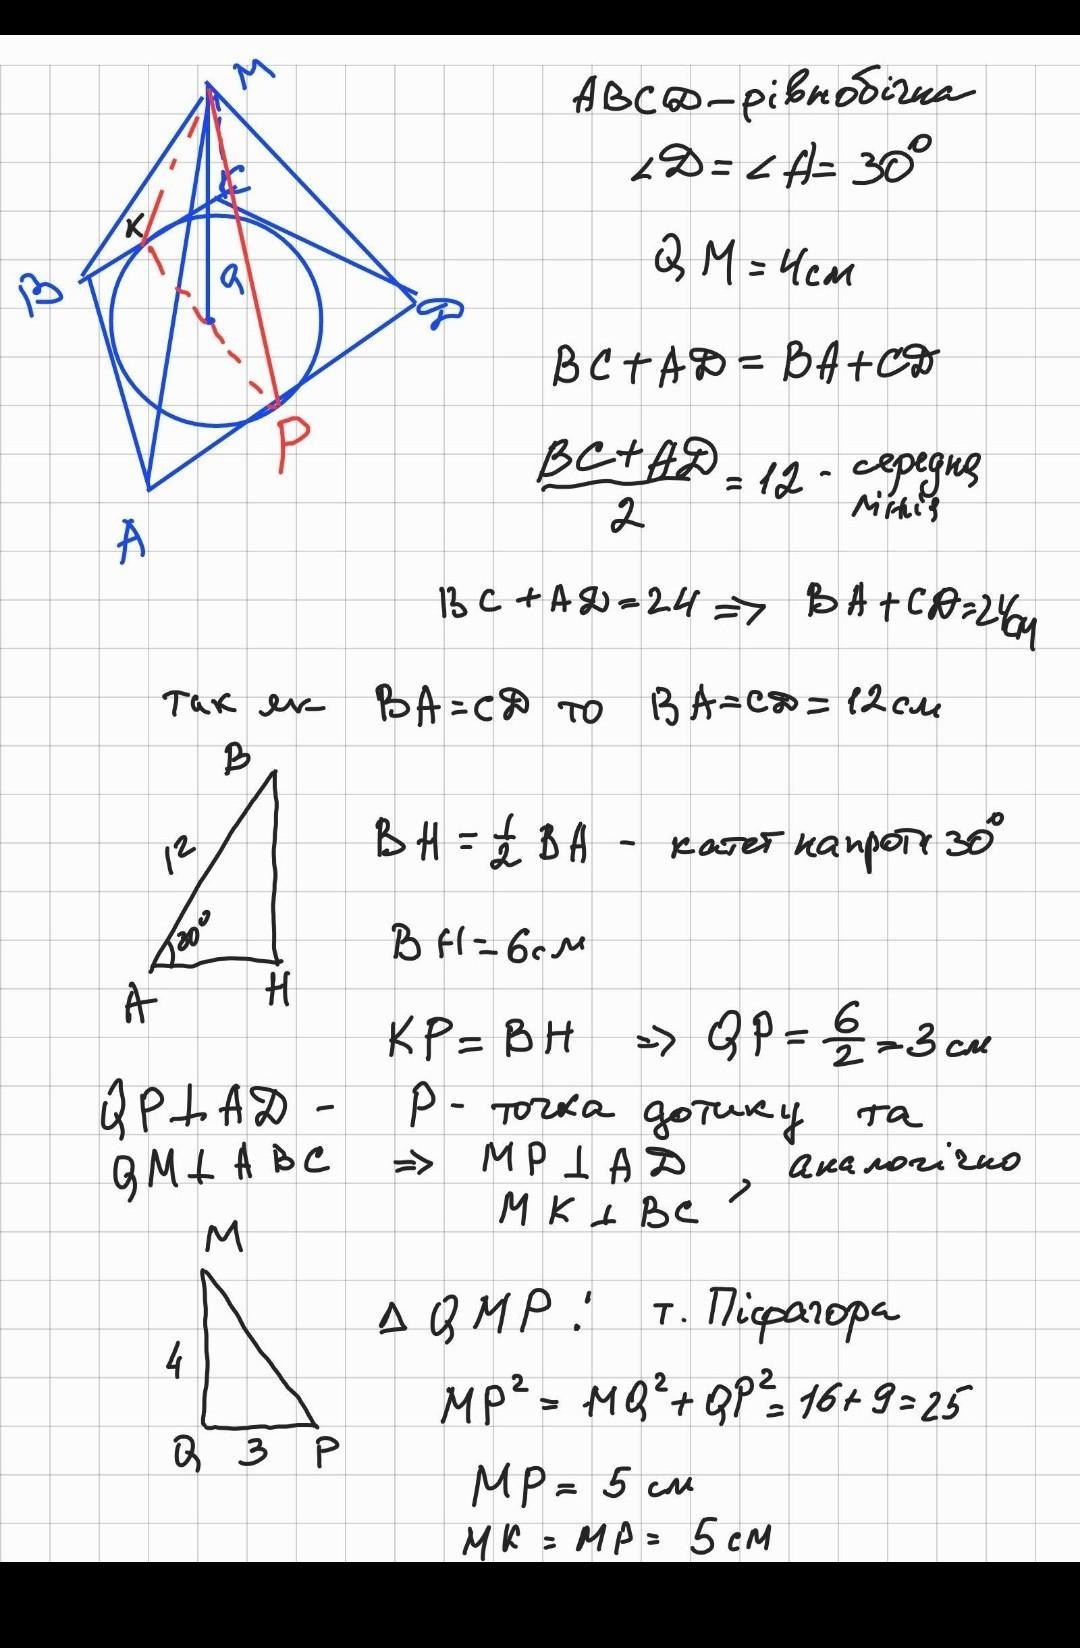 M
C
K
B
Q
D
P
A
ABCD - рівнобічна
∠D = ∠A = 30°
QM = 4 см
BC + AD = BA + CD
(BC + AD)/2 = 12 - середня
лінія
BC + AD = 24 => BA + CD = 24 см
Так як BA = CD то BA = CD = 12 см
B
12
30°
A
H
BH = 1/2 BA - катет напроти 30°
BH = 6 см
KP = BH => QP = 6/2 = 3 см
QP ⊥ AD - P - точка дотику та
QM ⊥ ABC => MP ⊥ AD, аналогічно
MK ⊥ BC
M
4
Q
3
P
Δ QMP: т. Піфагора
MP² = MQ² + QP² = 16 + 9 = 25
MP = 5 см
MK = MP = 5 см